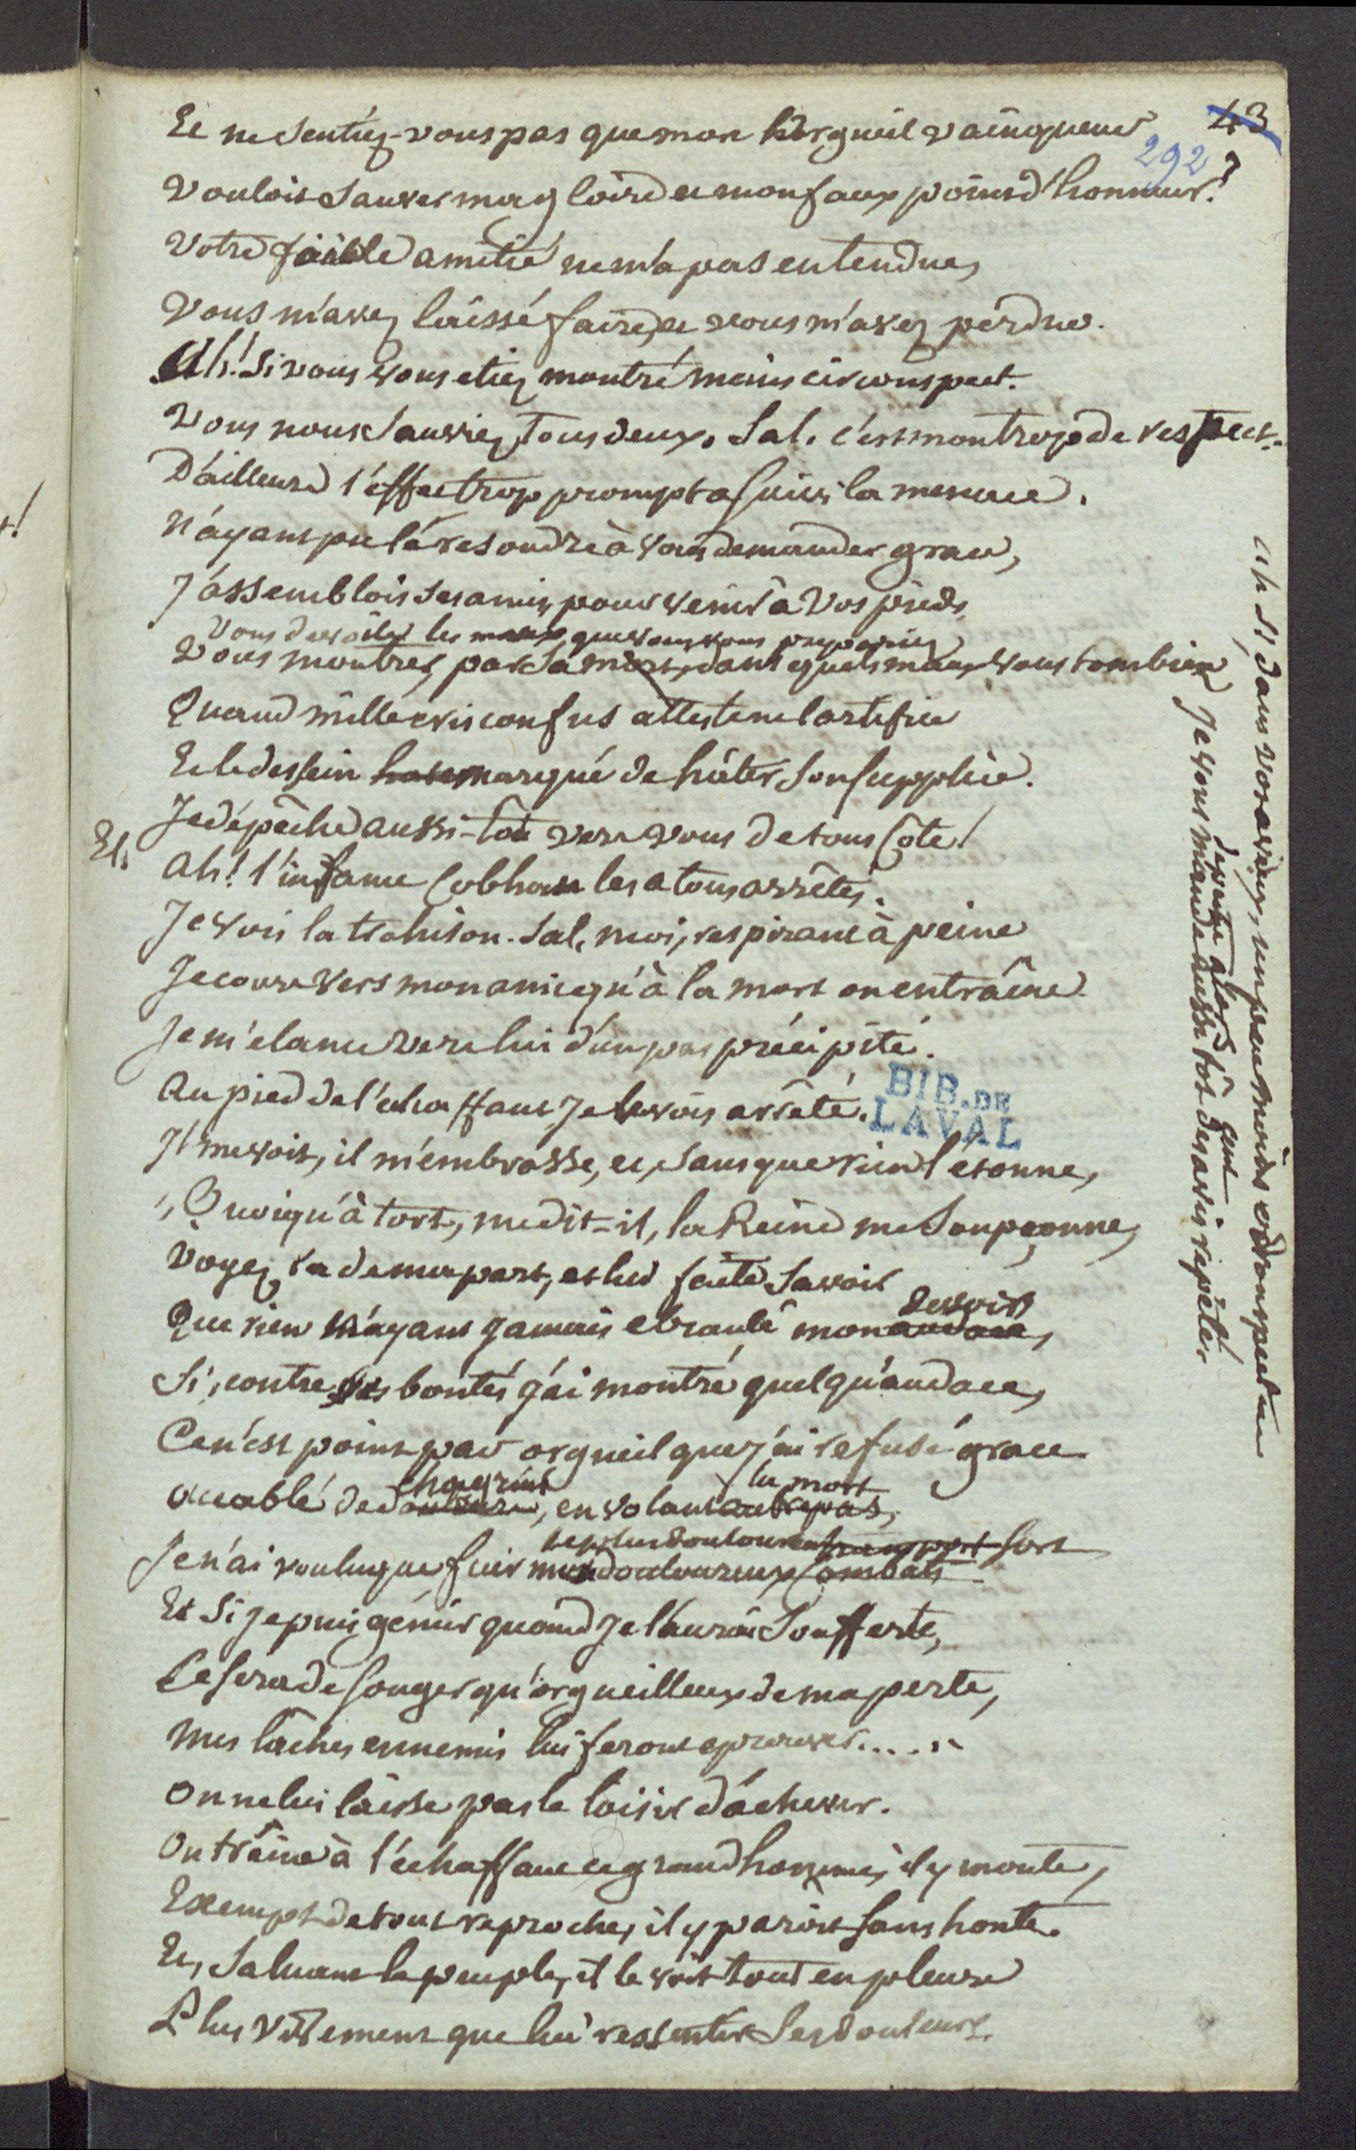 43
292
Et ne sentiez-vous pas que mon orgueil vainqueur
Vouloit sauver ma gloire et mon faux point d'honneur?
Votre faible amitié ne m'a pas entendue,
Vous m'avez laissé faire, et vous m'avez perdue.
Ah! si vous vous etiez montré moins circonspect.
Vous nous sauviez tous deux. Sal. c'est mon trop de respect.
D'ailleurs l'effet trop prompt a suivi la menace.
N'ayant pu le resoudre à vous demander grace,
J'assemblois ses amis pour venir à vos pieds
Vous devoiler les maux que vous vous prepariez
Vous montrer, par sa mort, dans quels maux vous tombiez
Quand mille cris confus attestent l'artifice
Et le dessein marqué de hâter son supplice.
Je dépêche aussi-tôt vers vous de tous côtés!
El. Ah! l'infame Cobham les a tous arrêtés.
Je vois la trahison. Sal. moi, respirant à peine
Je cours vers mon ami qu'à la mort on entraîne.
Je m'elance vers lui d'un pas précipité.
Au pied de l'echaffaut je le vois arrêté.
Il me voit, il m'embrasse, et, sans que rien l'etonne,
"Quoiqu'à tort, me dit-il, la Reine me soupçonne,
Voyez la de ma part, et lui faite savoir
Que rien n'ayant jamais ebranlé mon audace, devoir
Si, contre ses bontés j'ai montré quelqu'audace,
Ce n'est point par orgueil que j'ai refusé grace
chagrins la mort
accablé de douleurs, en volant au trepas,
le plus douloureux transport sort
Je n'ai voulu que fuir mes douloureux combats
Et si je puis gémir quand je l'aurai soufferte,
Ce sera de songer qu'orgueilleux de ma perte,
Mes lâches ennemis lui feront eprouver.....
On ne lui laisse pas le loisir d'achever.
On traine à l'echaffaut ce grand homme; il y monte,
Exempt de tout reproche, il y paroit sans honte.
Et, saluant le peuple, il le voit tout en pleurs
Plus vivement que lui ressentir ses douleurs.
ah si, dans vos avis, un peu moins circonspect
Je vous mande aussi tôt des avis repétés
BIB. DE
LAVAL